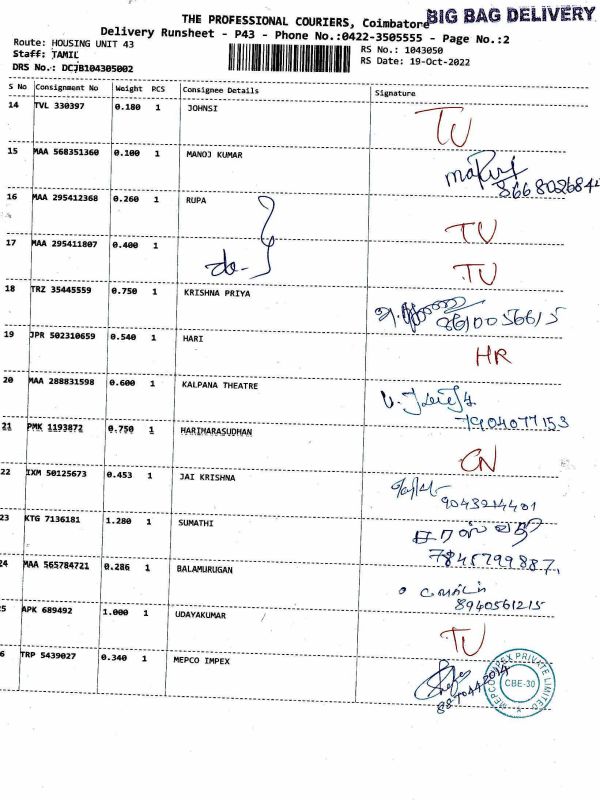 BIG BAG DELIVERY
THE PROFESSIONAL COURIERS, Coimbatore
Delivery Runsheet - P43 - Phone No.:0422-3505555 - Page No.:2
Route: HOUSING UNIT 43
Staff: TAMIL
DRS No.: DCJB104305002
RS No.: 1043050
RS Date: 19-Oct-2022
S No Consignment No Weight PCS Consignee Details Signature
14 TVL 330397 0.180 1 JOHNSI TU
15 MAA 568351360 0.100 1 MANOJ KUMAR
8668026844
16 MAA 295412368 0.260 1 RUPA TU
17 MAA 295411807 0.400 1 do- TU
18 TRZ 35445559 0.750 1 KRISHNA PRIYA
8610056615
19 JPR 502310659 0.540 1 HARI HR
20 MAA 288831598 0.600 1 KALPANA THEATRE
7904077153
21 PMK 1193872 0.750 1 HARIHARASUDHAN CN
22 IXM 50125673 0.453 1 JAI KRISHNA
9043214401
23 KTG 7136181 1.280 1 SUMATHI சரஸ்வதி
7845799887.
24 MAA 565784721 0.286 1 BALAMURUGAN
8940561215
25 APK 689492 1.000 1 UDAYAKUMAR TU
6 TRP 5439027 0.340 1 MEPCO IMPEX
MEPCO IMPEX PRIVATE LIMITED
CBE-30